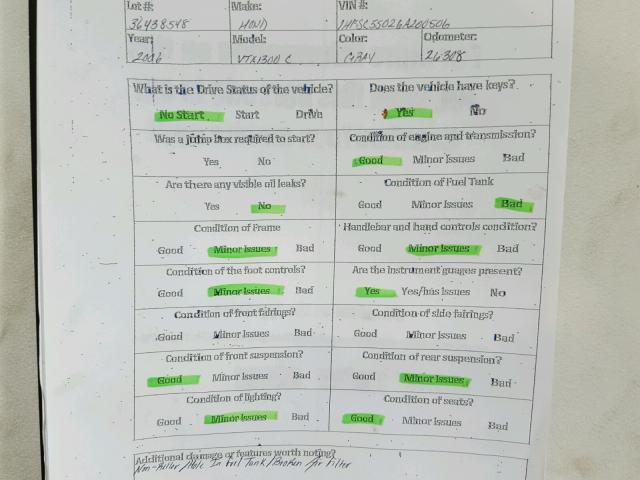 Lot #: Make: VIN #:
36438548 HOND 1HFSC55026A200506
Year: Model: Color: Odometer:
2006 VTX1300 C GRAY 26308
What is the Drive Status of the vehicle? Does the vehicle have keys?
No Start Start Drive Yes No
Was a jump box required to start? Condition of engine and transmission?
Yes No Good Minor Issues Bad
Are there any visible oil leaks? Condition of Fuel Tank
Yes No Good Minor Issues Bad
Condition of Frame Handlebar and hand controls condition?
Good Minor Issues Bad Good Minor Issues Bad
Condition of the foot controls? Are the instrument guages present?
Good Minor Issues Bad Yes Yes/has Issues No
Condition of front fairings? Condition of side fairings?
Good Minor Issues Bad Good Minor Issues Bad
Condition of front suspension? Condition of rear suspension?
Good Minor Issues Bad Good Minor Issues Bad
Condition of lighting? Condition of seats?
Good Minor Issues Bad Good Minor Issues Bad
Additional damage or features worth noting?
Non-Roller/Hole In Fuel Tank/Broken Air Filter